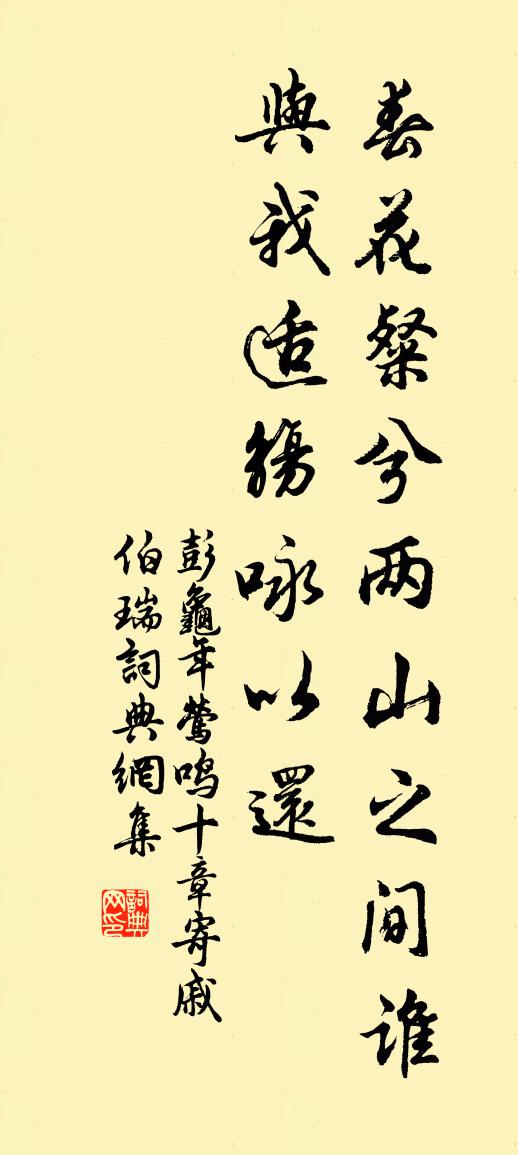 春花粲兮两山之间谁
與我适觴咏以還
彭龜年莺鳴十章寄戚
伯瑞詞典網集
詞典网印